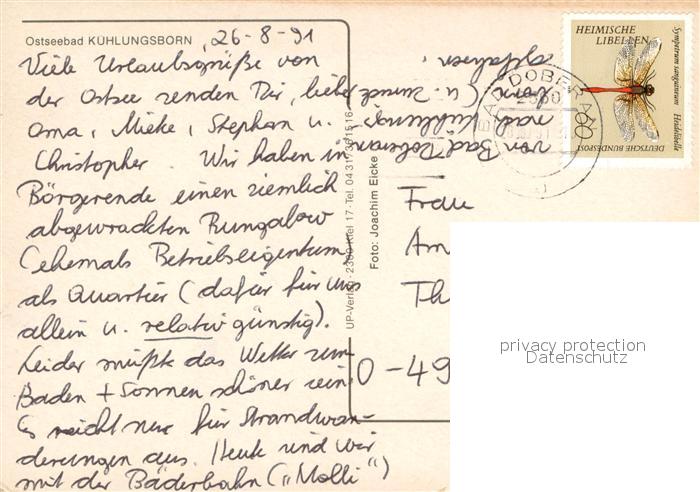 Ostseebad KÜHLUNGSBORN
26-8-91
Viele Urlaubsgrüße von
der Ostsee senden Dir, liebe
Oma, Mieke, Stephan u.
Christopher. Wir haben in
Börgerende einen ziemlich
abgewrackten Bungalow
(ehemals Betriebseigentum)
als Quartier (dafür für uns
allein u. relativ günstig).
Leider müßte das Wetter zum
Baden + Sonnen schöner sein.
Es reicht nur für Strandwan-
derungen aus. Heute sind wir
mit der Bäderbahn ("Molli")
von Bad Doberan
nach Kühlungs-
born (u. zurück)
gefahren.
UP-Verlag · 2300 Kiel 17 · Tel. 04 31/36 15 16
Foto: Joachim Eicke
HEIMISCHE
LIBELLEN
Sympetrum sanguineum Heidelibelle
60
DEUTSCHE BUNDESPOST
BAD DOBERAN
2560
Frau
Am
Th
O-49
privacy protection
Datenschutz